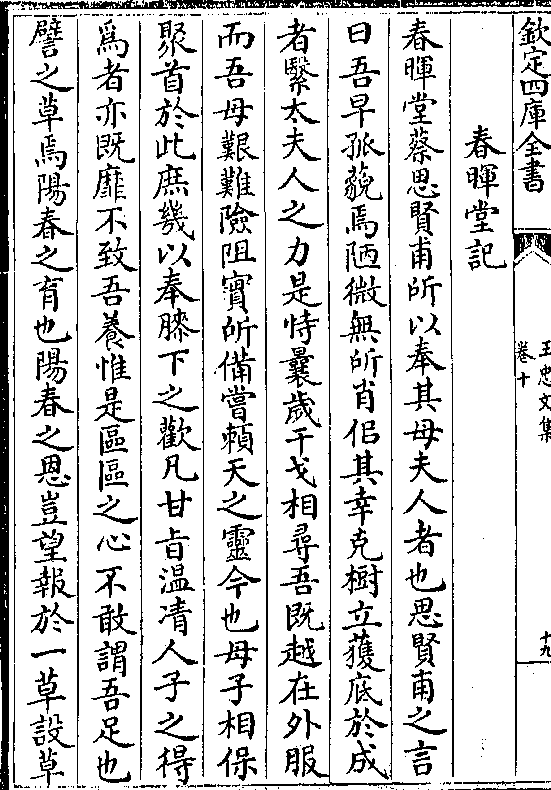 欽定四庫全書
王忠文集
卷十
十九
春暉堂記
春暉堂蔡思賢甫所以奉其母夫人者也思賢甫之言
曰吾早孤藐焉陋微無所肖佀其幸克樹立獲底於成
者繄太夫人之力是恃曩歲干戈相尋吾既越在外服
而吾母艱難險阻實所備嘗頼天之靈今也母子相保
聚首於此庶幾以奉膝下之歡凡甘㫖温凊人子之得
爲者亦既靡不致吾養惟是區區之心不敢謂吾足也
譬之草焉陽春之有也陽春之恩豈望報於一草設草